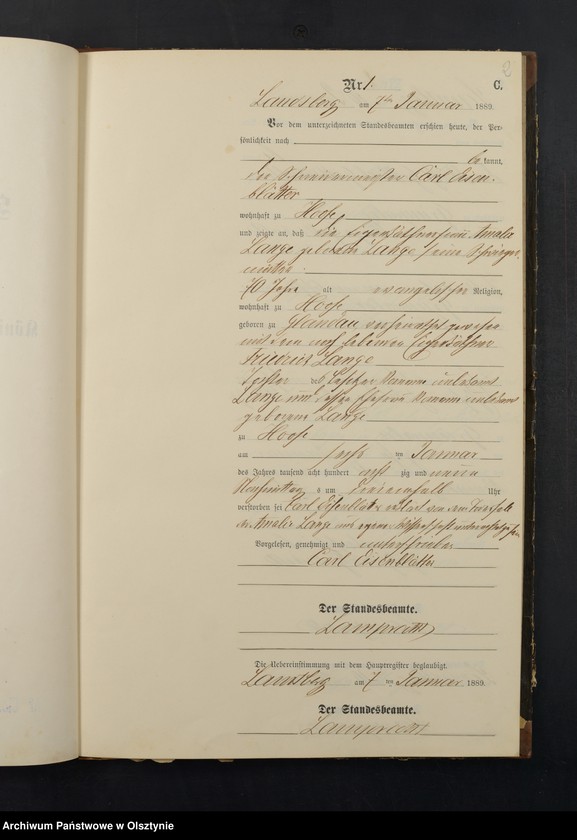 2
Nr. 1. C.
Landsberg am 7ten Januar 1889.
Vor dem unterzeichneten Standesbeamten erschien heute, der Per-
sönlichkeit nach
be kannt,
der Carl Eisen-
blätter
wohnhaft zu Hoofe
und zeigte an, daß die Amalie
Lange geborene Lange seine Schwieger-
mutter
70 Jahr alt evangelischer Religion,
wohnhaft zu Hoofe
geboren zu Glandau verheirathet gewesen
mit dem noch lebenden
Friedrich Lange
Tochter des
Lange und dessen Ehefrau
geborene Lange
zu Hoofe
am sechs ten Januar
des Jahres tausend acht hundert acht zig und neun
Nachmittags um Uhr
verstorben sei. Carl Eisenblätter erklärt von dem
der Amalie Lange aus eigener Wissenschaft unterrichtet zu sein
Vorgelesen, genehmigt und unterschrieben
Carl Eisenblätter
Der Standesbeamte.
Lamprecht
Die Uebereinstimmung mit dem Hauptregister beglaubigt.
Landsberg am 7 ten Januar 1889.
Der Standesbeamte.
Lamprecht
Archiwum Państwowe w Olsztynie